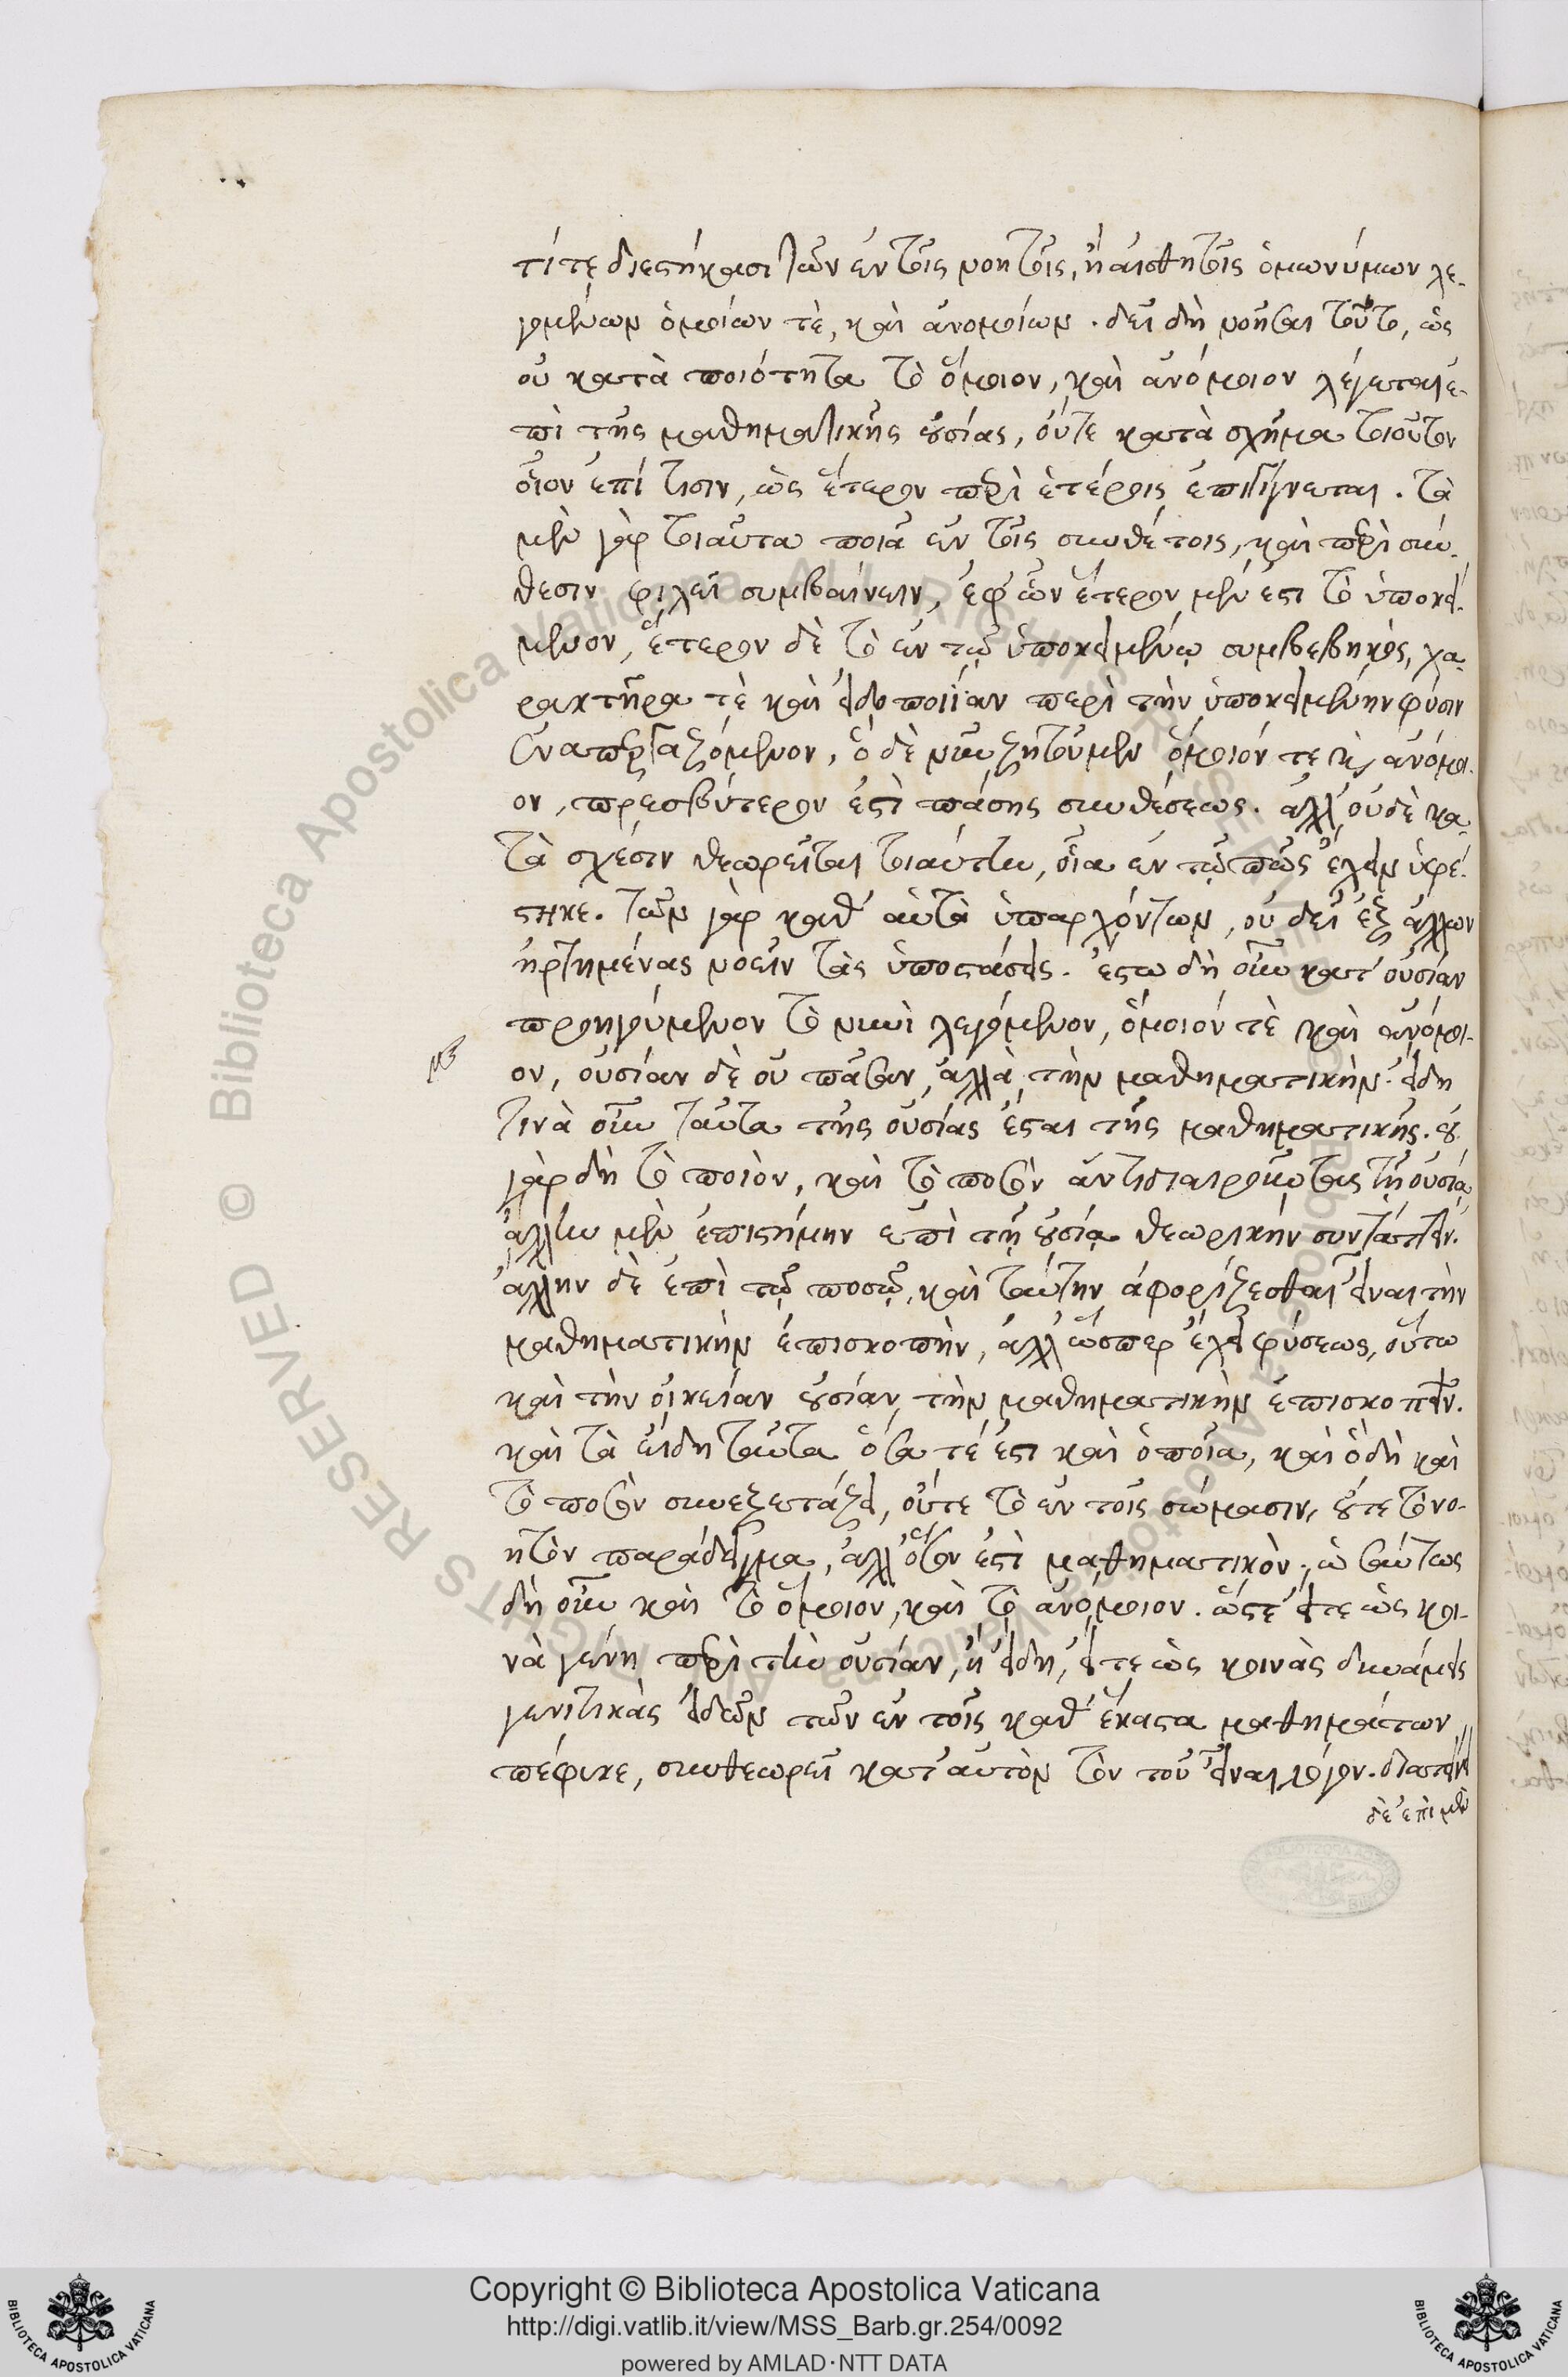 τί τε διεστήκασι τῶν ἐν τοῖς νοητοῖς, ἢ αἰσθητοῖς ὁμωνύμων λε-
γομένων ὁμοίων τὲ, καὶ ἀνομοίων. δεῖ δὴ νοῆσαι τοῦτο, ὡς
οὐ κατὰ ποιότητα τὸ ὅμοιον, καὶ ἀνόμοιον λέγεται ἐ-
πὶ τῆς μαθηματικῆς οὐσίας, οὔτε κατὰ σχῆμα τοιοῦτον
οἷον ἐπί τισιν, ὡς ἕτερον περὶ ἑτέροις ἐπιγίγνεται. τὰ
μὲν γὰρ τοιαῦτα ποιὰ ἐν τοῖς συνθέτοις, καὶ περὶ σύν-
θεσιν φιλεῖ συμβαίνειν, ἐφ' ὧν ἕτερον μέν ἐστι τὸ ὑποκεί-
μενον, ἕτερον δὲ τὸ ἐν τῷ ὑποκειμένῳ συμβεβηκὸς, χα-
ρακτῆρα τὲ καὶ εἰδοποιΐαν περὶ τὴν ὑποκειμένην φύσιν
ἐναπεργαζόμενον, ὃ δὲ νῦν ζητοῦμεν ὅμοιόν τε καὶ ἀνόμοι-
ον, πρεσβύτερον ἐστὶ πάσης συνθέσεως. ἀλλ' οὐδὲ κα-
τὰ σχέσιν θεωρεῖται τοιαύτην, οἵα ἐν τῷ πῶς ἔχειν ὑφέ-
στηκε. τῶν γὰρ καθ' αὑτὰ ὑπαρχόντων, οὐ δεῖ ἐξ ἄλλων
ἠρτημένας νοεῖν τὰς ὑποστάσεις. ἔστω δὴ οὖν κατ' οὐσίαν
προηγούμενον τὸ νυνὶ λεγόμενον, ὅμοιόν τὲ καὶ ἀνόμοι-
ον, οὐσίαν δὲ οὐ πᾶσαν, ἀλλὰ τὴν μαθηματικὴν. εἴδη
τινὰ οὖν ταῦτα τῆς οὐσίας ἔσται τῆς μαθηματικῆς. οὐ
γὰρ δὴ τὸ ποιὸν, καὶ τὸ ποσὸν ἀντιδιαιροῦντας τῇ οὐσίᾳ
ἄλλην μὲν ἐπιστήμην ἐπὶ τῇ οὐσίᾳ θεωρικὴν συντάττειν.
ἄλλην δὲ ἐπὶ τῷ ποσῷ, καὶ ταύτην ἀφορίζεσθαι εἶναι τὴν
μαθηματικὴν ἐπισκοπὴν, ἀλλ' ὥσπερ ἔχει φύσεως, οὕτω
καὶ τὴν οἰκείαν οὐσίαν, τὴν μαθηματικὴν ἐπισκοπεῖν.
καὶ τὰ εἴδη ταῦτα ὅσα τέ ἐστι καὶ ὁποῖα, καὶ ὃ δὴ καὶ
τὸ ποσὸν συνεξετάζει, οὔτε τὸ ἐν τοῖς σώμασιν, οὔτε τὸ νο-
ητὸν παράδειγμα, ἀλλ' ὅσον ἐστὶ μαθηματικὸν. ὡσαύτως
δὴ οὖν καὶ τὸ ὅμοιον, καὶ τὸ ἀνόμοιον. ὥστε εἴτε ὡς κοι-
νὰ γένη περὶ τὴν οὐσίαν, ἢ εἴδη, εἴτε ὡς κοινὰς δυνάμεις
γενιτικὰς εἰδῶν τῶν ἐν τοῖς καθ' ἕκαστα μαθημάτων
πέφυκε, συνθεωρεῖ κατ' αὐτὸν τὸν τοῦ εἶναι λόγον. διατείνει
δὲ ἐπὶ μὲν
Copyright © Biblioteca Apostolica Vaticana
http://digi.vatlib.it/view/MSS_Barb.gr.254/0092
powered by AMLAD·NTT DATA